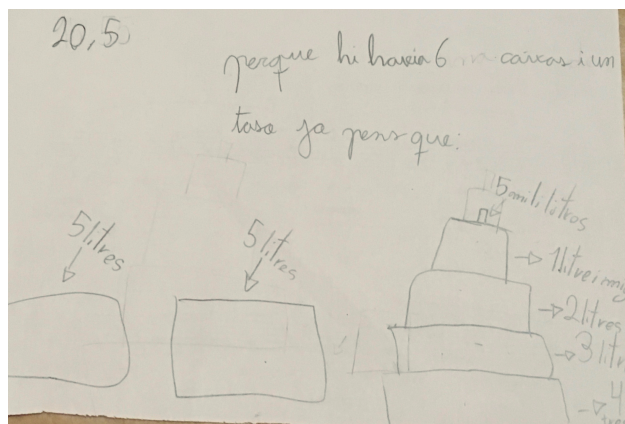 20,5
perque hi havia 6 caixas i un
taso ja pens que:
5 mili litros
5 litres
5 litres
1 litre i mig
2 litres
3 lit
4